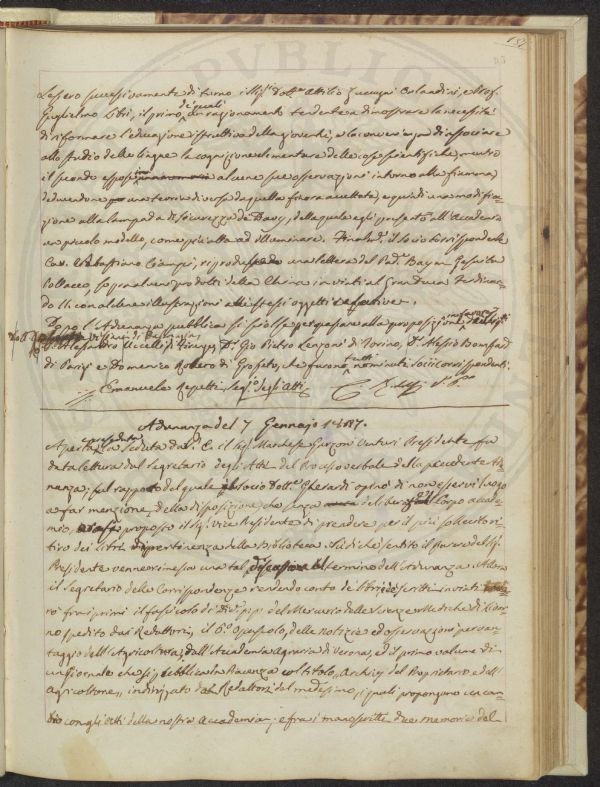 Lessero successivamente di turno i Sigri Dottri Attilio Zuccagni Orlandini, e Prof.
Guglielmo Libri, il primo de' quali un ragionamento tendente a dimostrare la necessità
di riformare l'educazione istruttiva della gioventù, e la convenienza di associare
allo studio delle lingue la cognizione elementare delle cose scientifiche, mentre
il secondo espose alcune sue osservazioni intorno alla fiamma,
deducendone una teoria diversa da quella finora accettata, e quindi una modifica-
zione alla lampada di sicurezza de Davy, della quale egli presentò all'Accademia
un piccolo modello, come più atta ad illuminare. Finalmte il socio Corrispondente
Cav. Sebastiano Ciampi, riprodusse una lettera del Pad. Baym Gesuita
Pollacco, sopra alcuni prodotti della China inviati al Granduca Ferdinan-
do II con alcune illustrazioni agli stessi oggetti relative.
Dopo l'Adunanza pubblica si sciolse per passare alla proposizione
Alessandro Uccelli di Firenze, D. Gio Pietro Lenzoni di Torino, D. Alessio Bompard
di Parigi e Domenico Robero di Grosseto, che furono tutti nominati socii corrispondenti.
Emanuele Repetti Segrio degli Atti
Adunanza del 7 Gennajo
Aperta la seduta dal S. C. il Sig. Marchese Garzoni Venturi Presidente fu
data lettura dal Segretario degli Atti del Processo verbale della precedente Adu-
nanza; sul rapporto del quale il socio Dott. Gherardi opinò di non esservi luogo
a far menzione della disposizione, che senza del Corpo accade-
mico, proposto il Sig. Vice Presidente di prendere per il più sollecito ri-
tiro dei libri di pertinenza della Biblioteca. Su di che sentito il parere del Sig.
Presidente venne rimessa una tal discussione al termine dell'Adunanza. Allora
il Segretario delle Corrispondenze rendendo conto de' libri e scritti inviati
fra i primi il fascicolo del Mercurio delle Scienze Mediche di Livor-
no spedito dai Redattori, il 6o Opuscolo, delle Notizie ed osservazioni per van-
taggio dell'Agricoltura, dall'Accademia Agraria di Verona, ed il primo volume di
un giornale che si pubblica in Piacenza col titolo, Archivj del Proprietario e dell'
Agricoltore, indirizzato dai Redattori del medesimo, i quali propongono un cam-
bio con gli atti della nostra Accademia; e fra i manoscritti due memorie del